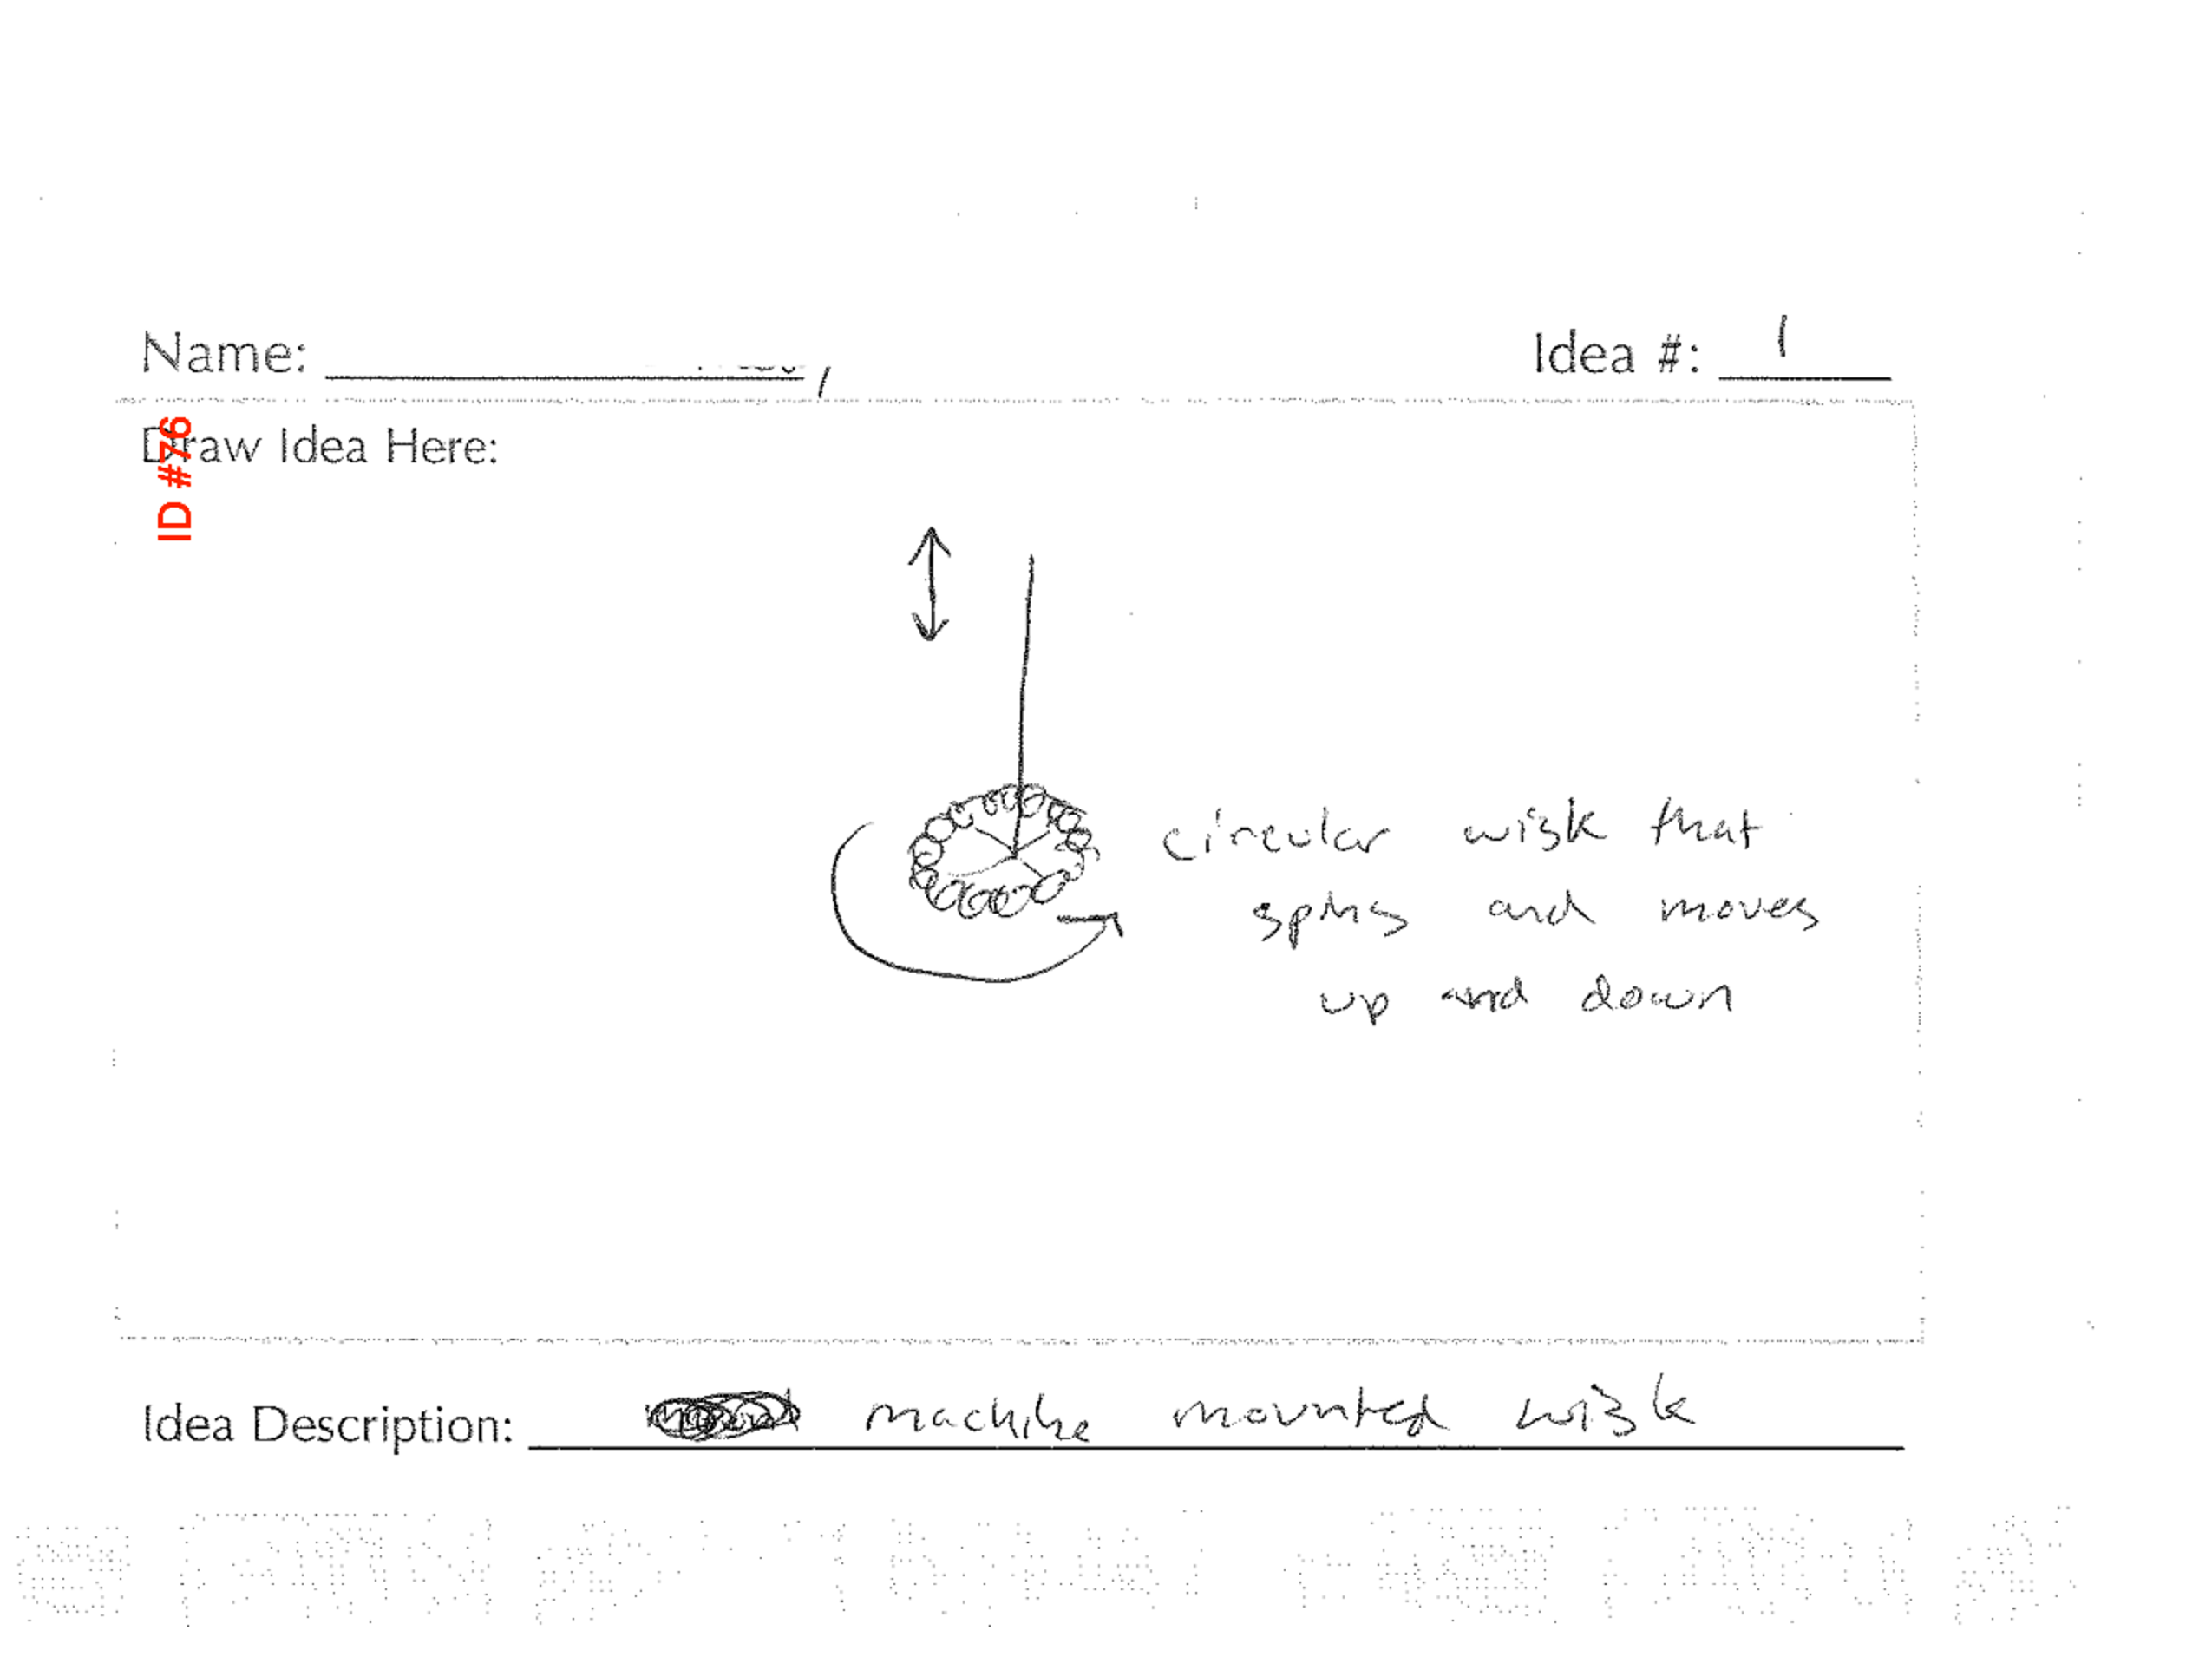 Name:
Idea #: 1
Draw Idea Here:
ID #76
circular wisk that
spins and moves
up and down
Idea Description: machine mounted wisk